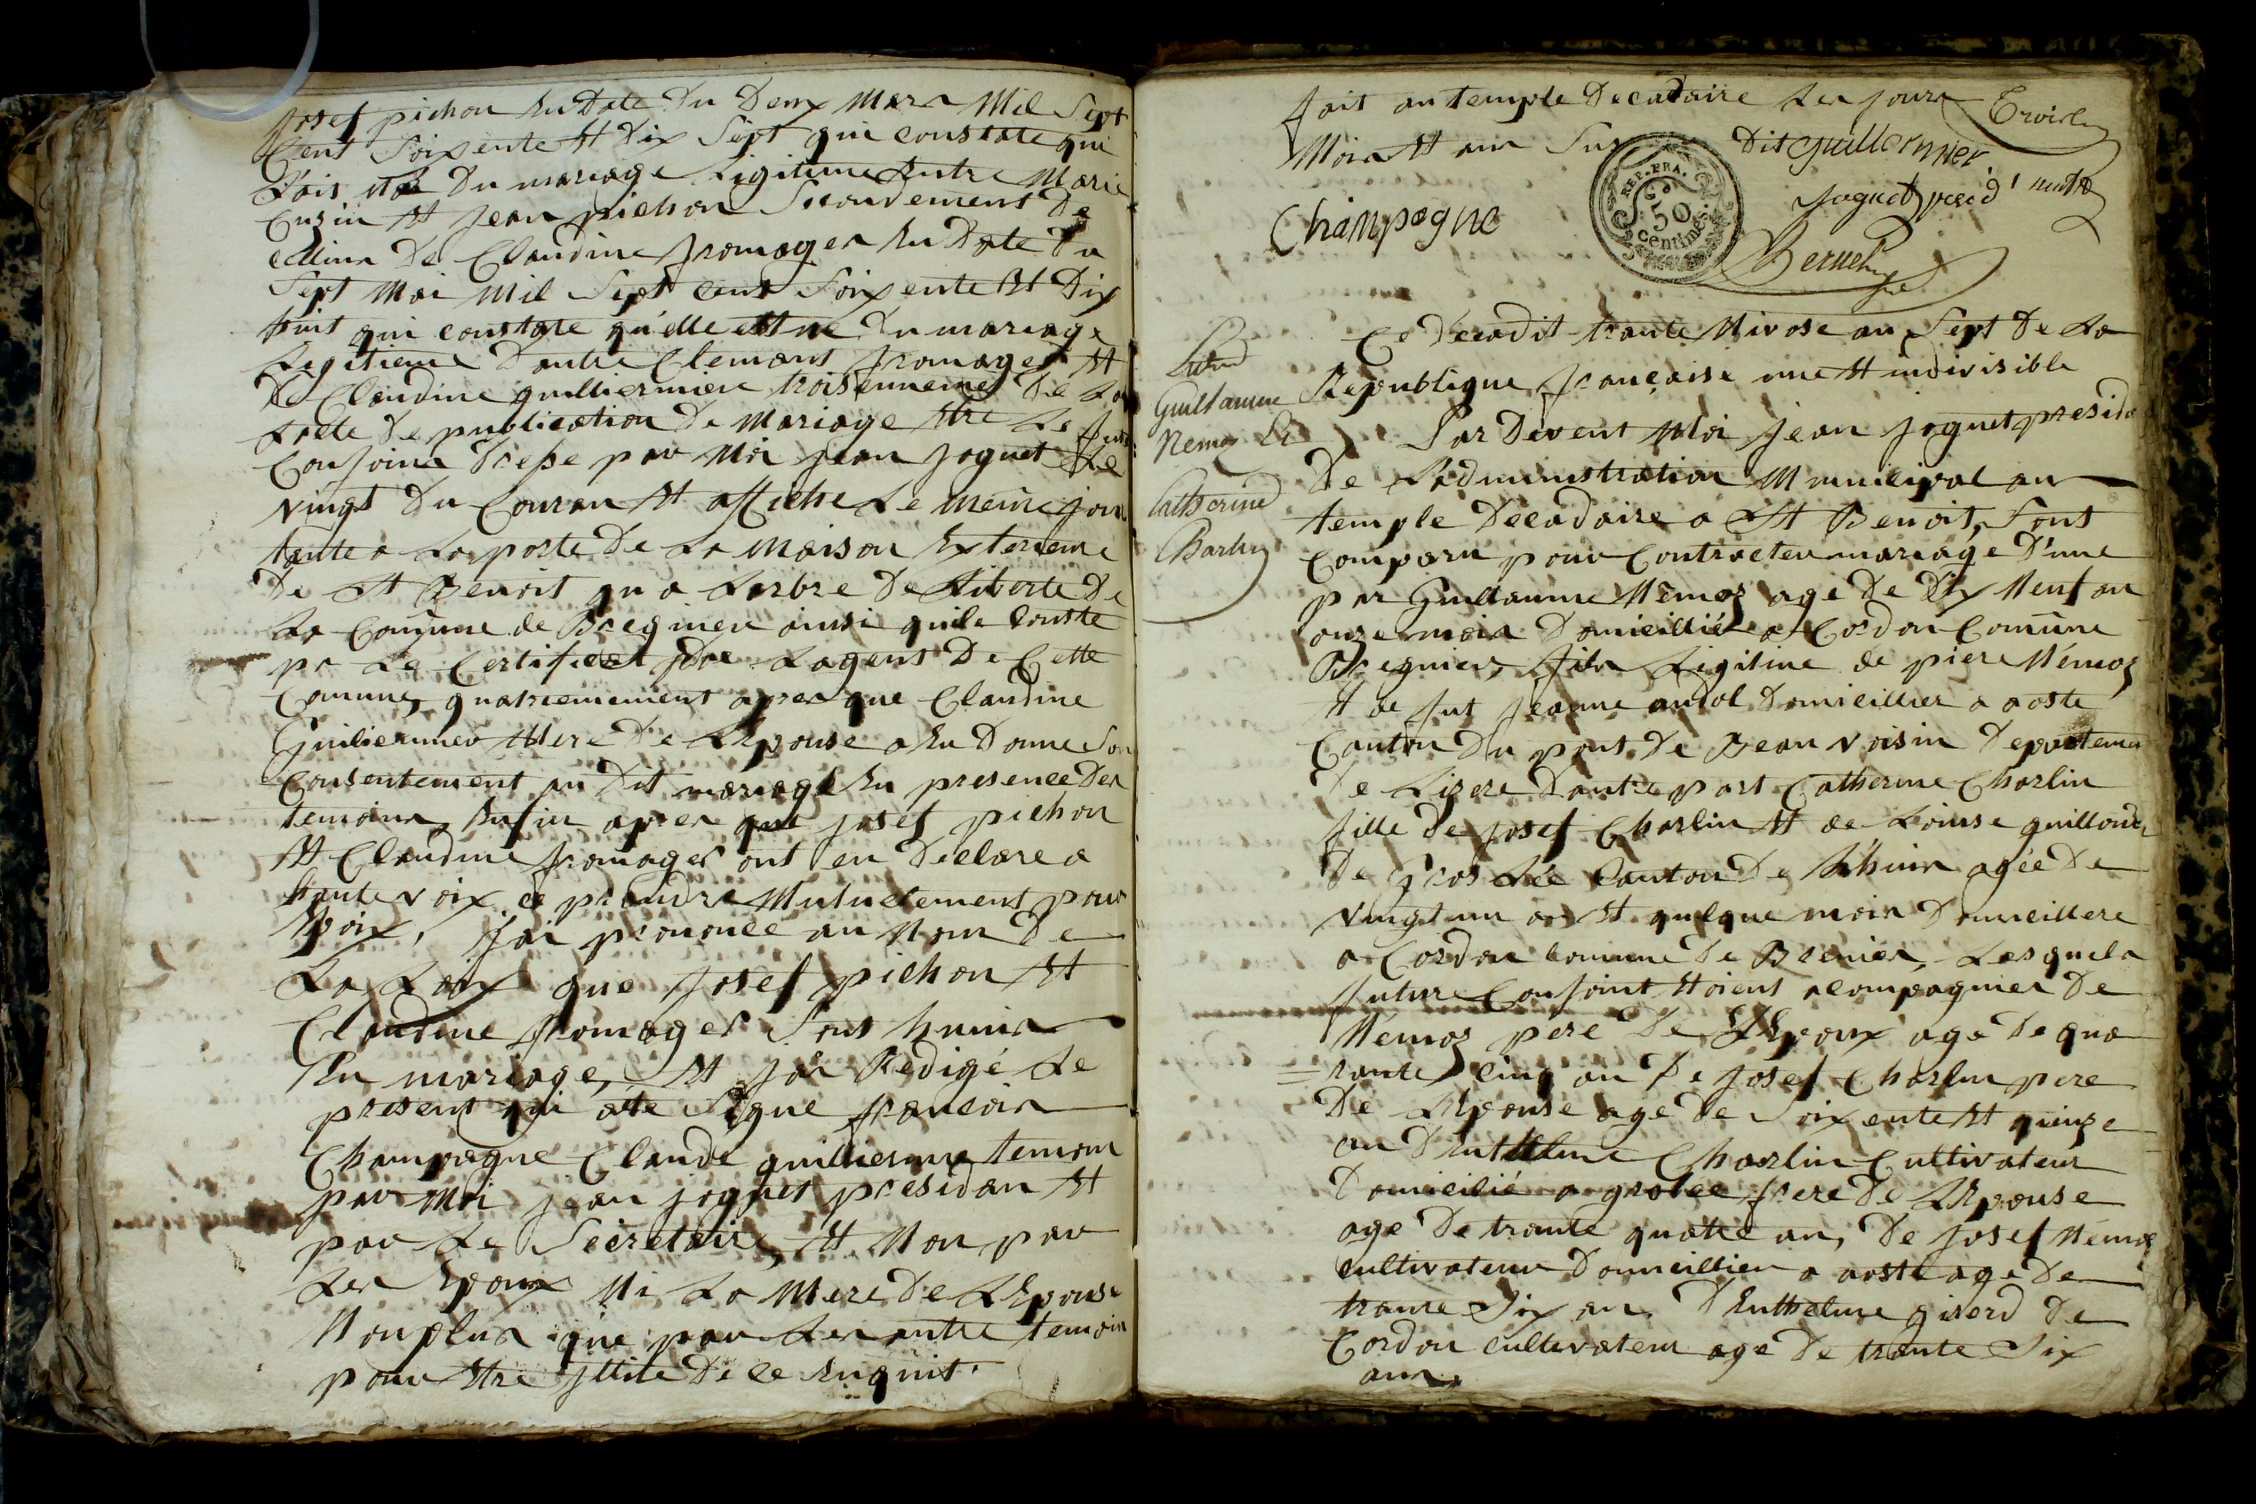 Josef pichon En Date Du Deux Mars Mil Sept
Cent Soixente Et Dix Sept qui constate qui
Du mariage Ligitime Entre Marie
Cusin Et Jean pichon Secondement De
De Claudine fromager En Date Du
Sept Mai Mil Sept cent Soixente Et Dix
huit qui constate qu'elle Est ne Du mariage
Legitieme D'entre Clemant fromager Et
De Claudine guilliermier troisiemement De La
Lacte De publication De Mariage Etre Le
Conjoins Dresse par Moi Jean Joguet Le
vingt Du Couran Et affiche Le meme jour
tante a La porte De La Maison Exterieure
De St Benoit qu a Larbre De Liberte De
La Comune de Bregnier ainsi quil Conste
pr Le Certificat de Lagent De Cette
Comune, quatriemement apres que Claudine
Guiliermier Mere De LEpouse a Eu Donne Son
Consentement au Dit mariage En presence Des
temoins Enfin apres que josef pichon
Et Claudine fromager ont eu Declare a
haute voix se prendre Mutuelement pour
Epoix, Jai prononce au Nom De
La Loix que Josef pichon Et
Claudine fromager Sont hunis
En mariage, Et Jai Redigé Le
present qui a ete Signe francois
Champagne Claude guillierme temoin
par Moi jean joguet presidan Et
par Le Secretair, Et Non par
Les Epoux Ni La Mere De LEpouse
Non plus que par Les autre temoin
pour Etre De ce Enquit.
fait au temple Decadaire Les jours
Mois Et an Sus Dit guillermier
REP. FRA.
50
centimes.
Joguet presid
Champagne
Guillaume
Nemoz Et
Catherine
Charlin
Ce Decadit trante Nivose an Sept De La
Republique francaise une Et indivisible
Par Devent Moi Jean Joguet preside
De Ladministration Municipal au
temple Decadaire a St Benoit, Sont
Comparu pour Contracter mariage D'une
par Guillaume Nemoz age De Dix Neuf an
onze mois Domicillié a Cordon Comune
Bregnier, fils Ligitime de piere Nemoz
Et de fut Jeanne Domicillier a aoste
Canton Du pont De Beau voisin Departemen
De Lizere D'autre part Catherine Charlin
fille de Josef Charlin Et de Louise
De Gros Lée Canton De Lhuis agée De
vingt un an Et quelque mois Domicillere
a Cordon comune De Brenier, Lesquels
future Conjoint Etoient acompagnier De
Nemoz pere De LEpoux age De qua
rante cinq an De Josef Charlin pere
De LEpouse age De Soixente Et quinze
an D Charlin Cultivateur
Domicilié a grolee frere De LEpouse
age De trante quatre an, De Josef Nemoz
cultivateur Domicillier a aoste age De
trante Six an D De
Cordon cultivateur age De trante Six
ans